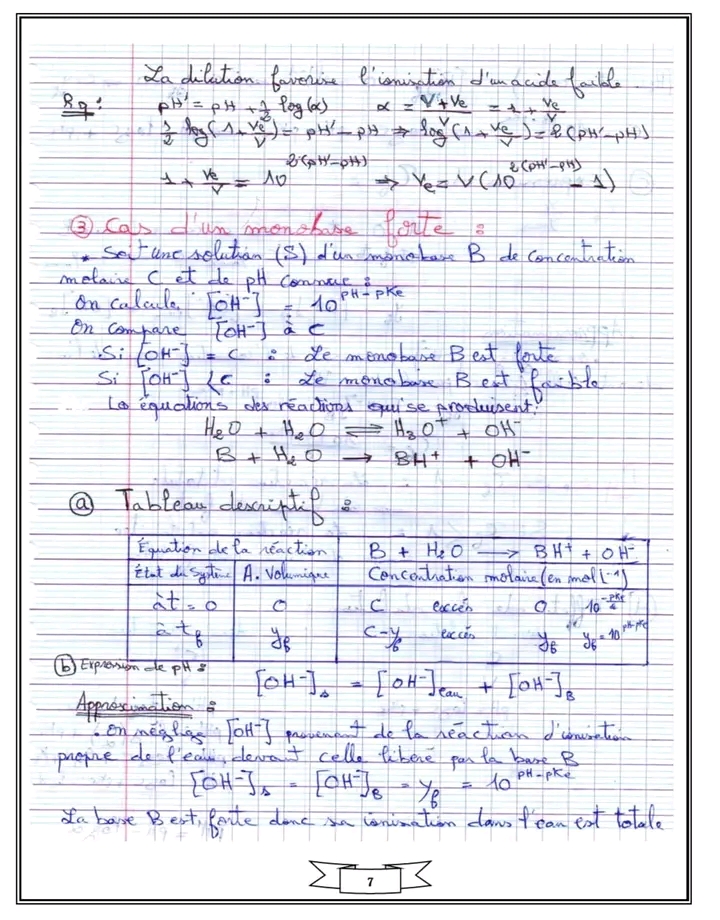 La dilution favorise l'ionisation d'un acide faible
Rq : pH' = pH + 1/2 log(α)   α = (V+Ve)/V = 1 + Ve/V
1/2 log(1 + Ve/V) = pH' - pH ⇒ log(1 + Ve/V) = 2(pH' - pH)
1 + Ve/V = 10^2(pH'-pH) ⇒ Ve = V(10^2(pH'-pH) - 1)
③ Cas d'un monobase forte :
. Soit une solution (S) d'un monobase B de concentration
molaire C et de pH connue :
On calcule [OH⁻] = 10^pH-pKe
On compare [OH⁻] à C
Si [OH⁻] = C : Le monobase B est forte
Si [OH⁻] < C : Le monobase B est faible
Le équations des réactions qui se produisent :
H₂O + H₂O ⇌ H₃O⁺ + OH⁻
B + H₂O → BH⁺ + OH⁻
ⓐ Tableau descriptif :
Équation de la réaction   B + H₂O → BH⁺ + OH⁻
État du Système   A. Volumique   Concentration molaire (en mol L⁻¹)
à t = 0   0   C   excés   0   10^-pKe/2
à tf   yf   C-yf   excés   yf   yf = 10^pH-pKe
ⓑ Expression de pH :
[OH⁻]s = [OH⁻]eau + [OH⁻]B
Approximation :
. On néglige [OH⁻] provenant de la réaction d'ionisation
propre de l'eau devant celle libéré par la base B
[OH⁻]s = [OH⁻]B = yf = 10^pH-pKe
La base B est forte donc sa ionisation dans l'eau est totale
7